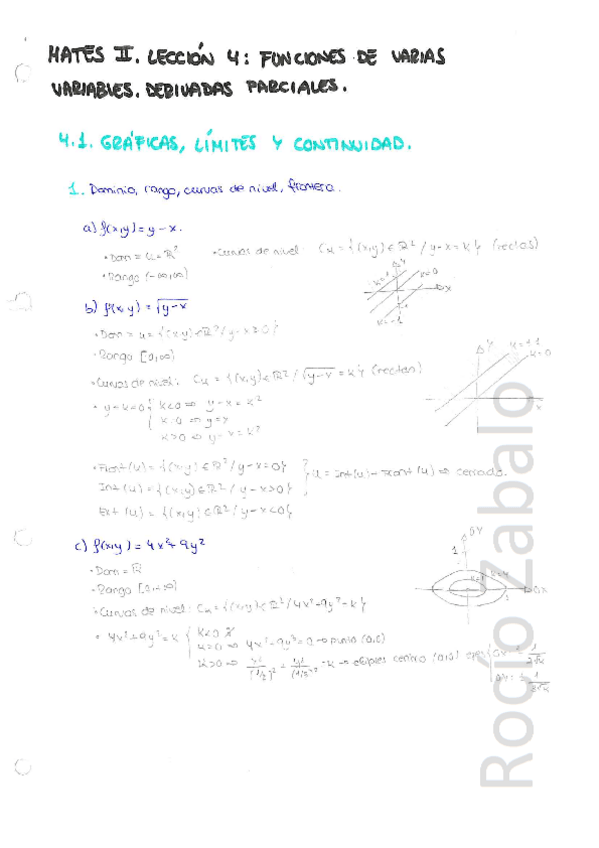 MATES II. LECCIÓN 4: FUNCIONES DE VARIAS
VARIABLES. DERIVADAS PARCIALES.
4.1. GRÁFICAS, LÍMITES Y CONTINUIDAD.
1. Dominio, rango, curvas de nivel, frontera.
a) f(x,y) = y - x.
• Dom = u = ℝ² • Curvas de nivel: Cк = {(x,y) ∈ ℝ² / y-x = k} (rectas)
• Rango (-∞,∞)
k=0
x
k=-1
b) f(x,y) = √y-x
• Dom = u = {(x,y) ∈ ℝ² / y-x ≥ 0}
• Rango [0,∞)
• Curvas de nivel: Cк = {(x,y) ∈ ℝ² / √y-x = k} (rectas)
k=0
x
k<0 ⇒ y-x = k²
k=0 ⇒ y=x
k>0 ⇒ y-x = k²
• Front(u) = {(x,y) ∈ ℝ² / y-x=0}
Int(u) = {(x,y) ∈ ℝ² / y-x>0} u = Int(u) - Front(u) ⇒ cerrado.
Ext(u) = {(x,y) ∈ ℝ² / y-x<0}
c) f(x,y) = 4x²+9y²
• Dom = ℝ
• Rango
• Curvas de nivel: Cк = {(x,y) ∈ ℝ² / 4x²+9y² = k}
• 4x²+9y² = k
k=0 ⇒ 4x²+9y²=0 → punto (0,0)
k>0 ⇒ elipses centro (0,0) ejes
Rocío Zabalo